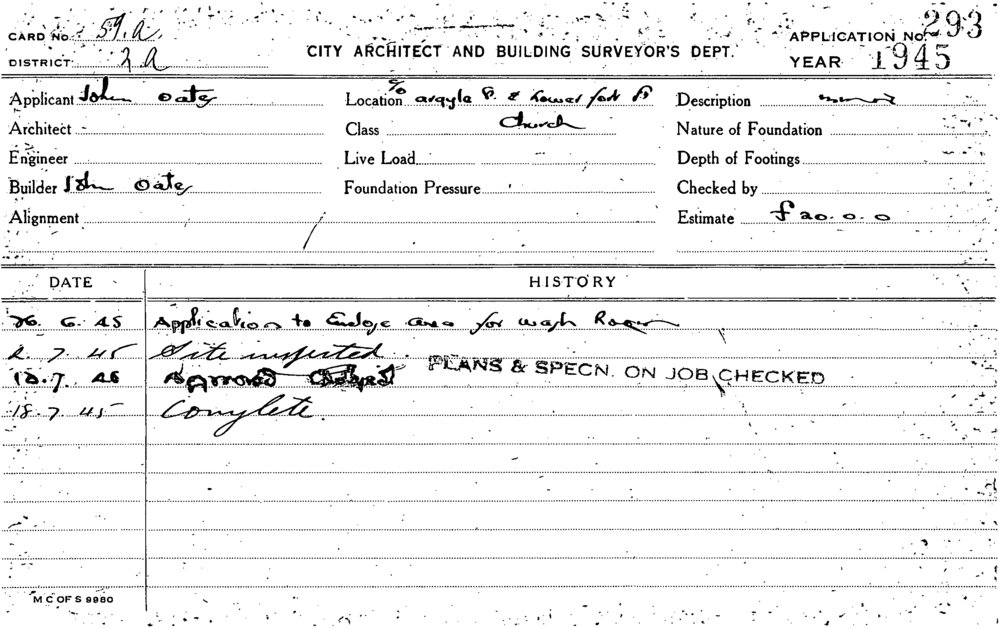 CARD No. 59.A. APPLICATION No. 293
DISTRICT 2A CITY ARCHITECT AND BUILDING SURVEYOR'S DEPT. YEAR 1945
Applicant John Oates Location c/o Argyle St. & Lower Fort St Description minor
Architect Class Church Nature of Foundation
Engineer Live Load Depth of Footings
Builder John Oates Foundation Pressure Checked by
Alignment Estimate £20.0.0
DATE HISTORY
26. 6. 45 Application to Enclose area for wash Room
2. 7. 45 Site inspected.
12.7 45 Approved PLANS & SPECN. ON JOB CHECKED
18.7.45 Complete.
M C OF S 9980